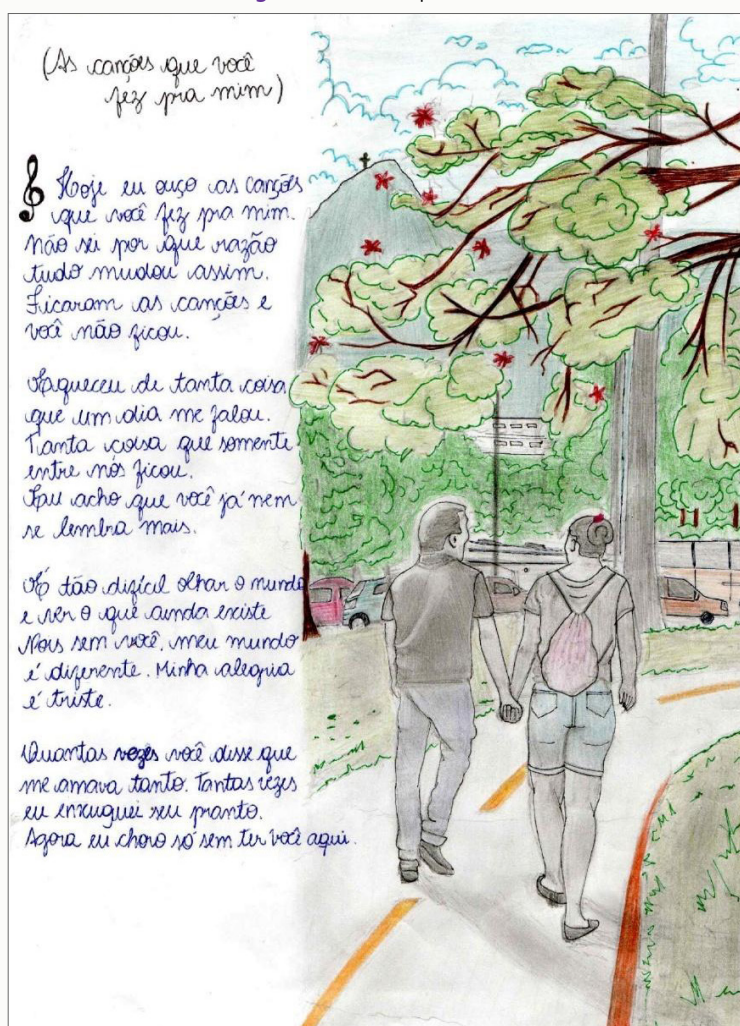 (As canções que você
fez pra mim)
Hoje eu ouço as canções
que você fez pra mim.
Não sei por que razão
tudo mudou assim.
Ficaram as canções e
você não ficou.
Esqueceu de tanta coisa
que um dia me falou.
Tanta coisa que somente
entre nós ficou.
Eu acho que você já nem
se lembra mais.
É tão difícil olhar o mundo
e ver o que ainda existe
Pois sem você, meu mundo
é diferente. Minha alegria
é triste.
Quantas vezes você disse que
me amava tanto. Tantas vezes
eu enxuguei seu pranto.
Agora eu choro só sem ter você aqui.